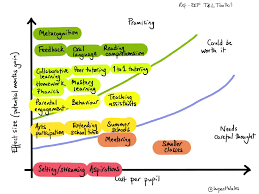 Promising
Metacognition
Feedback
Oral language
Reading comprehension
Could be worth it
Collaborative learning
Peer tutoring
1 to 1 tutoring
Homework
Mastery learning
Phonics
Parental engagement
Behaviour
Teaching assistants
Arts participation
Extending school time
Summer schools
Mentoring
Smaller classes
Needs careful thought
Setting/streaming
Aspirations
Effect size (potential months gain)
Cost per pupil